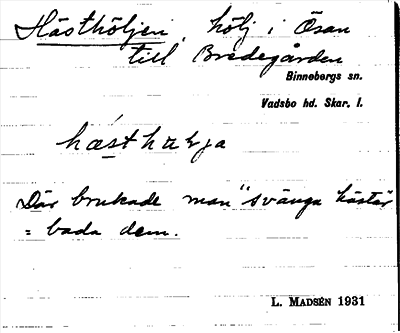 Hästhöljen, hölj i Ösan
till Bredegården
Binnebergs sn.
Vadsbo hd. Skar. l.
Där brukade man "svänga hästar
= bada dem.
L. MADSÉN 1931